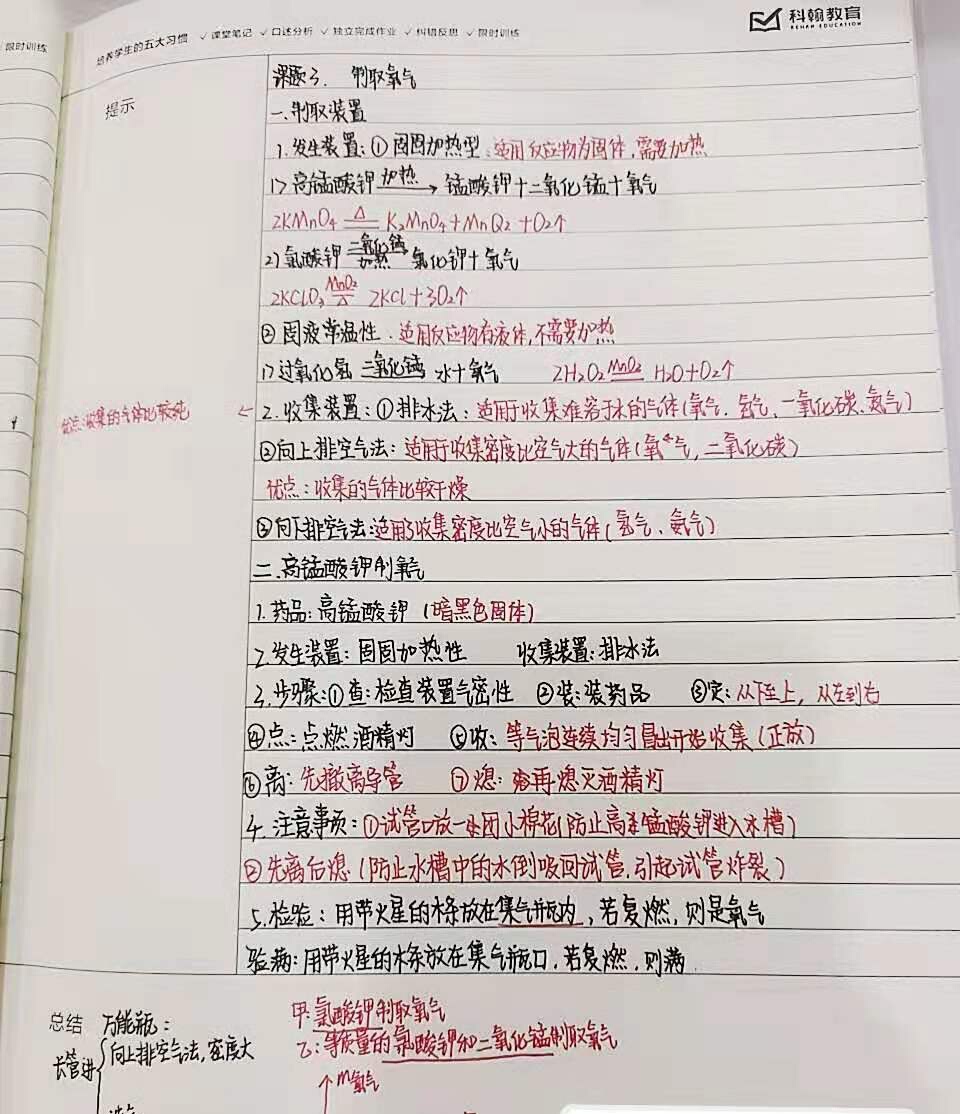 限时训练
培养学生的五大习惯 ✓课堂笔记 ✓口述分析 ✓独立完成作业 ✓纠错反思 ✓限时训练
科翰教育
KEHAN EDUCATION
提示
课题3. 制取氧气
一.制取装置
1.发生装置:①固固加热型:适用反应物为固体,需要加热
1>高锰酸钾 加热→ 锰酸钾+二氧化锰+氧气
2KMnO₄ ≜ K₂MnO₄+MnO₂+O₂↑
2)氯酸钾 二氧化锰 加热 氯化钾+氧气
2KClO₃ MnO₂ △ 2KCl+3O₂↑
②固液常温性.适用反应物有液体,不需要加热
1>过氧化氢 二氧化锰 水+氧气 2H₂O₂ MnO₂ H₂O+O₂↑
优点:收集的气体比较纯 ← 2.收集装置:①排水法:适用于收集难容于水的气体(氧气.氢气、一氧化碳.氮气)
②向上排空气法:适用于收集密度比空气大的气体(氧气,二氧化碳)
优点:收集的气体比较干燥
③向下排空气法:适用于收集密度比空气小的气体(氢气、氨气)
二.高锰酸钾制氧气
1.药品:高锰酸钾(暗黑色固体)
2.发生装置:固固加热性 收集装置:排水法
3.步骤:①查:检查装置气密性 ②装:装药品 ③定:从下至上,从左到右
④点:点燃酒精灯 ⑤收:等气泡连续均匀冒出开始收集(正放)
⑥离:先撤离导管 ⑦熄:再熄灭酒精灯
4.注意事项:①试管口放一团小棉花(防止高锰酸钾进入水槽)
②先离后熄(防止水槽中的水倒吸回试管,引起试管炸裂)
5.检验:用带火星的木条放在集气瓶内,若复燃,则是氧气
验满:用带火星的木条放在集气瓶口,若复燃,则满
总结 万能瓶:
长管进 向上排空气法,密度大
甲:氯酸钾制取氧气
乙:等质量的氯酸钾和二氧化锰制取氧气
m氧气